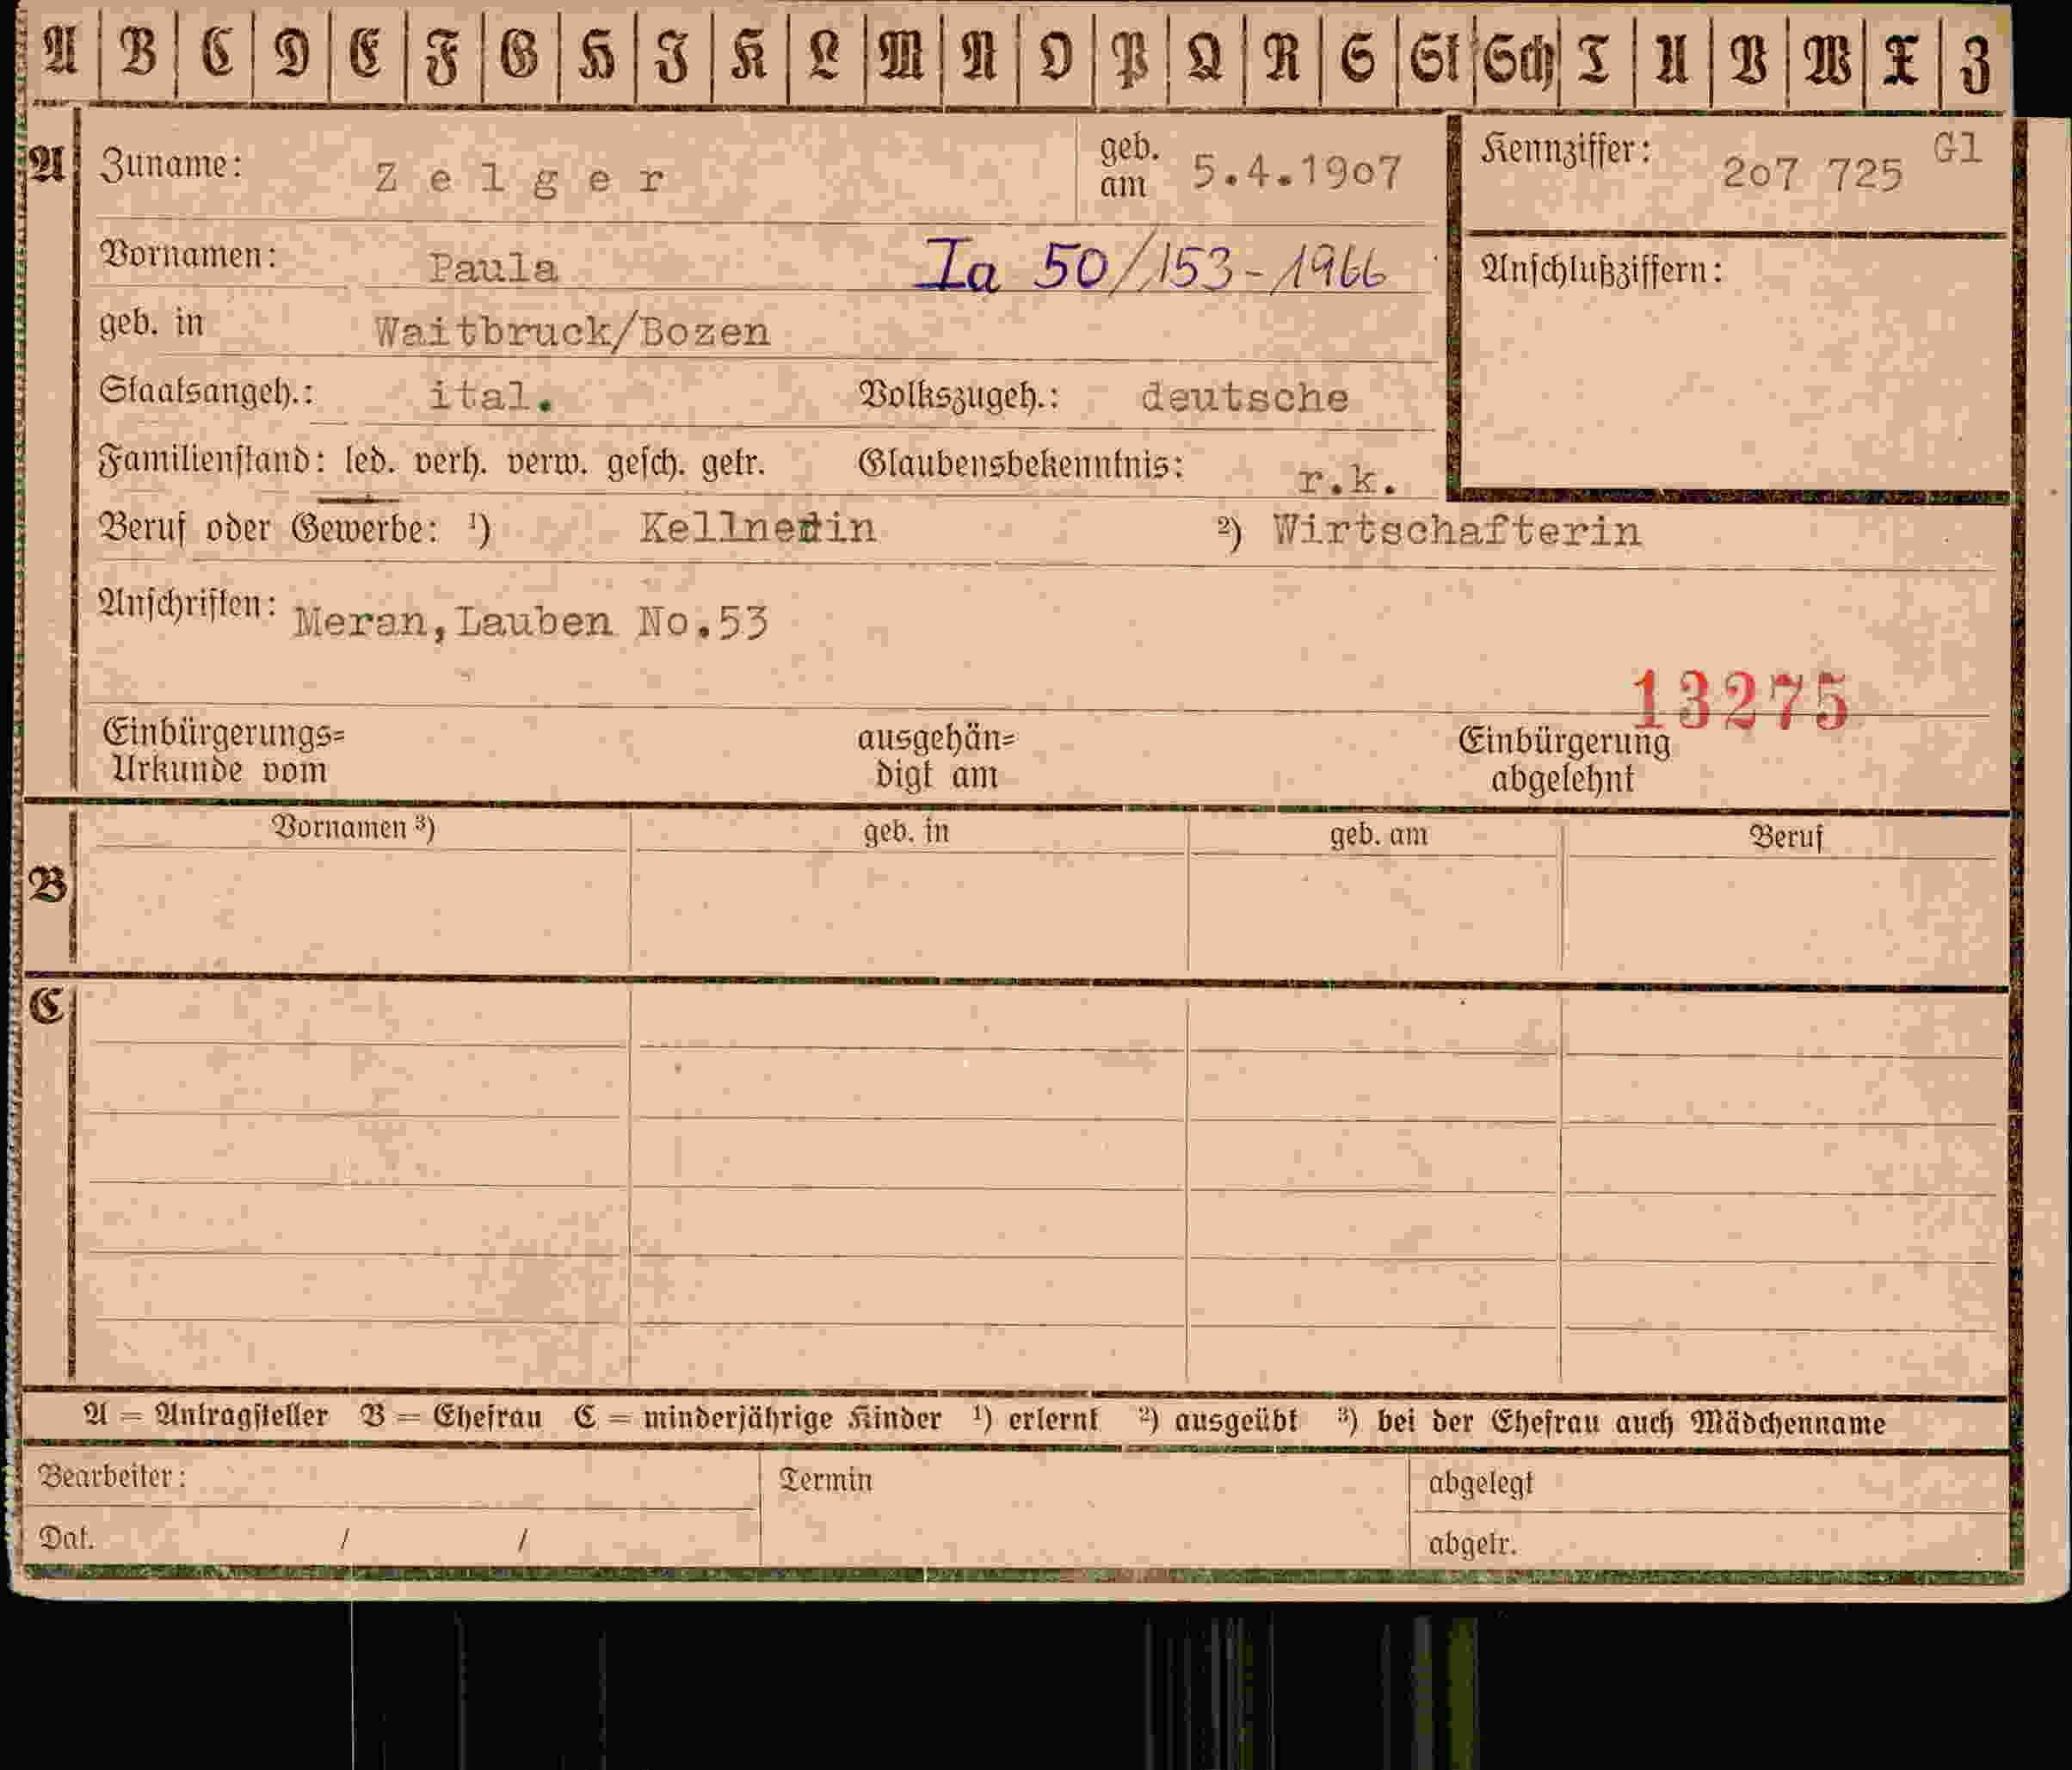 A B C D E F G H I K L M N O P Q R S St Sch T U V W X Z
A Zuname: Zelger geb. am 5.4.1907 Kennziffer: 207 725 Gl
Vornamen: Paula Ia 50/153-1966 Anschlußziffern:
geb. in Waitbruck/Bozen
Staatsangeh.: ital. Volkszugeh.: deutsche
Familienstand: led. verh. verw. gesch. getr. Glaubensbekenntnis: r.k.
Beruf oder Gewerbe: ¹) Kellnerin ²) Wirtschafterin
Anschriften: Meran, Lauben No.53
13275
Einbürgerungs= ausgehän= Einbürgerung
Urkunde vom digt am abgelehnt
Vornamen ³) geb. in geb. am Beruf
B
C
A = Antragsteller B = Ehefrau C = minderjährige Kinder ¹) erlernt ²) ausgeübt ³) bei der Ehefrau auch Mädchenname
Bearbeiter: Termin abgelegt
Dat. / / abgetr.